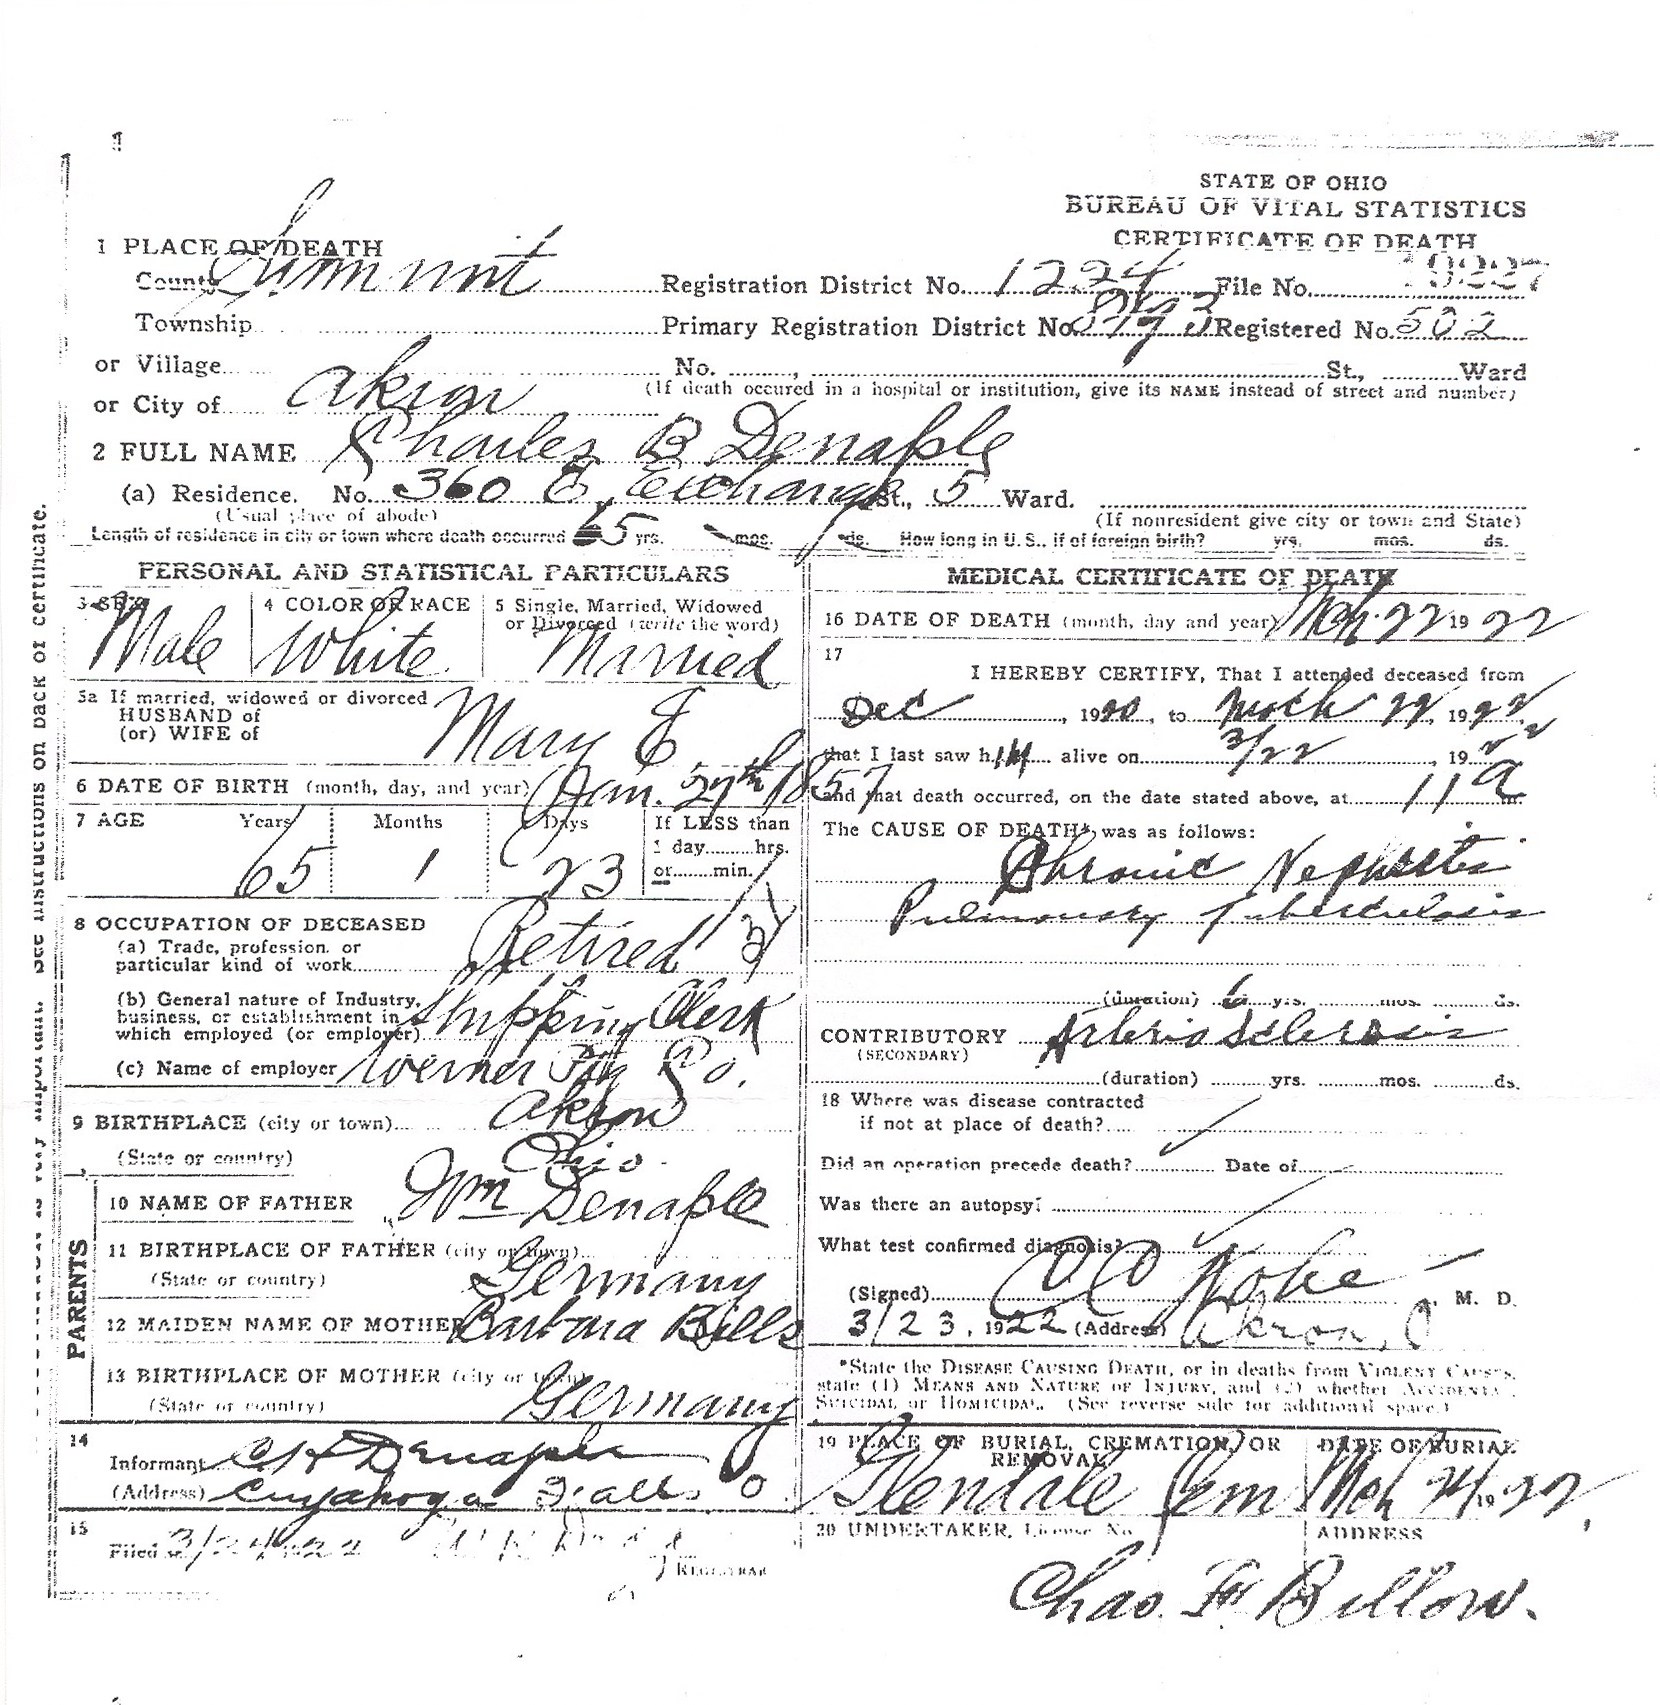 STATE OF OHIO
BUREAU OF VITAL STATISTICS
CERTIFICATE OF DEATH
1 PLACE OF DEATH
County Summit Registration District No. 1224 File No. 19227
Township Primary Registration District No. Registered No. 502
or Village No. , St., Ward
(If death occured in a hospital or institution, give its NAME instead of street and number)
or City of Akron
2 FULL NAME Charles B Denaple
(a) Residence. No. 360 E. Exchange St., 5 Ward.
(Usual place of abode) (If nonresident give city or town and State)
Length of residence in city or town where death occurred 65 yrs. mos. ds. How long in U. S., if of foreign birth? yrs. mos. ds.
PERSONAL AND STATISTICAL PARTICULARS
3 SEX Male
4 COLOR OR RACE White
5 Single, Married, Widowed
or Divorced (write the word)
Married
5a If married, widowed or divorced
HUSBAND of
(or) WIFE of
Mary E
6 DATE OF BIRTH (month, day, and year) Jan. 27th 1857
7 AGE Years Months Days If LESS than
1 day hrs.
or min.
65 1 23
8 OCCUPATION OF DECEASED
(a) Trade, profession, or
particular kind of work Retired
(b) General nature of Industry,
business, or establishment in
which employed (or employer) Shipping Clerk
(c) Name of employer Werner Ptg Co.
9 BIRTHPLACE (city or town) Akron
(State or country) Ohio
PARENTS
10 NAME OF FATHER Wm Denaple
11 BIRTHPLACE OF FATHER (city or town)
(State or country) Germany
12 MAIDEN NAME OF MOTHER Barbara Bills
13 BIRTHPLACE OF MOTHER (city or town)
(State or country) Germany
14
Informant C H Denaple
(Address) Cuyahoga Falls O
15
Filed 3/24 1922 REGISTRAR
MEDICAL CERTIFICATE OF DEATH
16 DATE OF DEATH (month, day and year) Mch. 22 1922
17
I HEREBY CERTIFY, That I attended deceased from
Dec , 1920, to March 22, 1922
that I last saw him alive on 3/22, 1922
and that death occurred, on the date stated above, at 11 a m.
The CAUSE OF DEATH* was as follows:
Chronic Nephritis
Pulmonary tuberculosis
(duration) 6 yrs. mos. ds.
CONTRIBUTORY Arterio Sclerosis
(SECONDARY)
(duration) yrs. mos. ds.
18 Where was disease contracted
if not at place of death?
Did an operation precede death? Date of
Was there an autopsy?
What test confirmed diagnosis?
(Signed) M. D.
3/23, 1922 (Address) Akron, O
*State the DISEASE CAUSING DEATH, or in deaths from VIOLENT CAUSES,
state (1) MEANS AND NATURE OF INJURY, and (2) whether ACCIDENTAL,
SUICIDAL or HOMICIDAL. (See reverse side for additional space.)
19 PLACE OF BURIAL, CREMATION, OR
REMOVAL
Glendale Cem
DATE OF BURIAL
Mch 24, 1922
20 UNDERTAKER, License No.
ADDRESS
Chas. F. Billow.
See instructions on back of certificate.